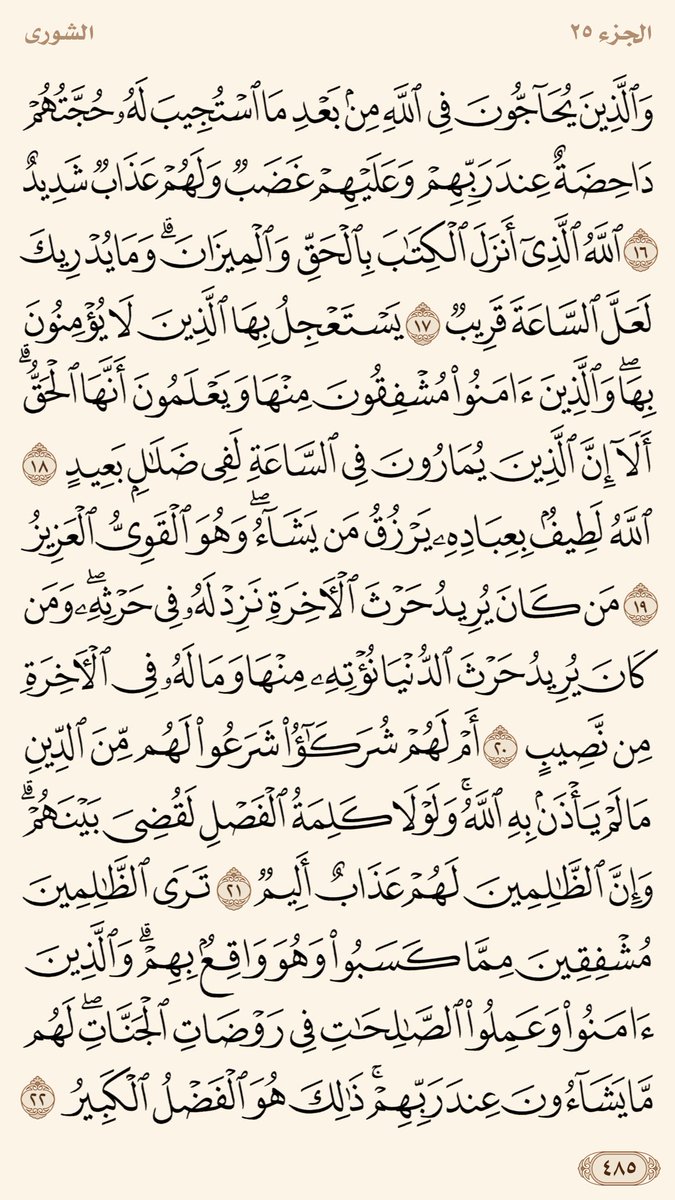 الجزء ٢٥ الشورى
وَٱلَّذِينَ يُحَآجُّونَ فِى ٱللَّهِ مِنۢ بَعْدِ مَا ٱسْتُجِيبَ لَهُۥ حُجَّتُهُمْ
دَاحِضَةٌ عِندَ رَبِّهِمْ وَعَلَيْهِمْ غَضَبٌ وَلَهُمْ عَذَابٌ شَدِيدٌ
١٦ ٱللَّهُ ٱلَّذِىٓ أَنزَلَ ٱلْكِتَٰبَ بِٱلْحَقِّ وَٱلْمِيزَانَ ۗ وَمَا يُدْرِيكَ
لَعَلَّ ٱلسَّاعَةَ قَرِيبٌ ١٧ يَسْتَعْجِلُ بِهَا ٱلَّذِينَ لَا يُؤْمِنُونَ
بِهَا ۖ وَٱلَّذِينَ ءَامَنُوا۟ مُشْفِقُونَ مِنْهَا وَيَعْلَمُونَ أَنَّهَا ٱلْحَقُّ ۗ
أَلَآ إِنَّ ٱلَّذِينَ يُمَارُونَ فِى ٱلسَّاعَةِ لَفِى ضَلَٰلٍۭ بَعِيدٍ ١٨
ٱللَّهُ لَطِيفٌۢ بِعِبَادِهِۦ يَرْزُقُ مَن يَشَآءُ ۖ وَهُوَ ٱلْقَوِىُّ ٱلْعَزِيزُ
١٩ مَن كَانَ يُرِيدُ حَرْثَ ٱلْءَاخِرَةِ نَزِدْ لَهُۥ فِى حَرْثِهِۦ ۖ وَمَن
كَانَ يُرِيدُ حَرْثَ ٱلدُّنْيَا نُؤْتِهِۦ مِنْهَا وَمَا لَهُۥ فِى ٱلْءَاخِرَةِ
مِن نَّصِيبٍ ٢٠ أَمْ لَهُمْ شُرَكَٰٓؤُا۟ شَرَعُوا۟ لَهُم مِّنَ ٱلدِّينِ
مَا لَمْ يَأْذَنۢ بِهِ ٱللَّهُ ۚ وَلَوْلَا كَلِمَةُ ٱلْفَصْلِ لَقُضِىَ بَيْنَهُمْ ۗ
وَإِنَّ ٱلظَّٰلِمِينَ لَهُمْ عَذَابٌ أَلِيمٌ ٢١ تَرَى ٱلظَّٰلِمِينَ
مُشْفِقِينَ مِمَّا كَسَبُوا۟ وَهُوَ وَاقِعٌۢ بِهِمْ ۗ وَٱلَّذِينَ
ءَامَنُوا۟ وَعَمِلُوا۟ ٱلصَّٰلِحَٰتِ فِى رَوْضَاتِ ٱلْجَنَّاتِ ۖ لَهُم
مَّا يَشَآءُونَ عِندَ رَبِّهِمْ ۚ ذَٰلِكَ هُوَ ٱلْفَضْلُ ٱلْكَبِيرُ ٢٢
٤٨٥